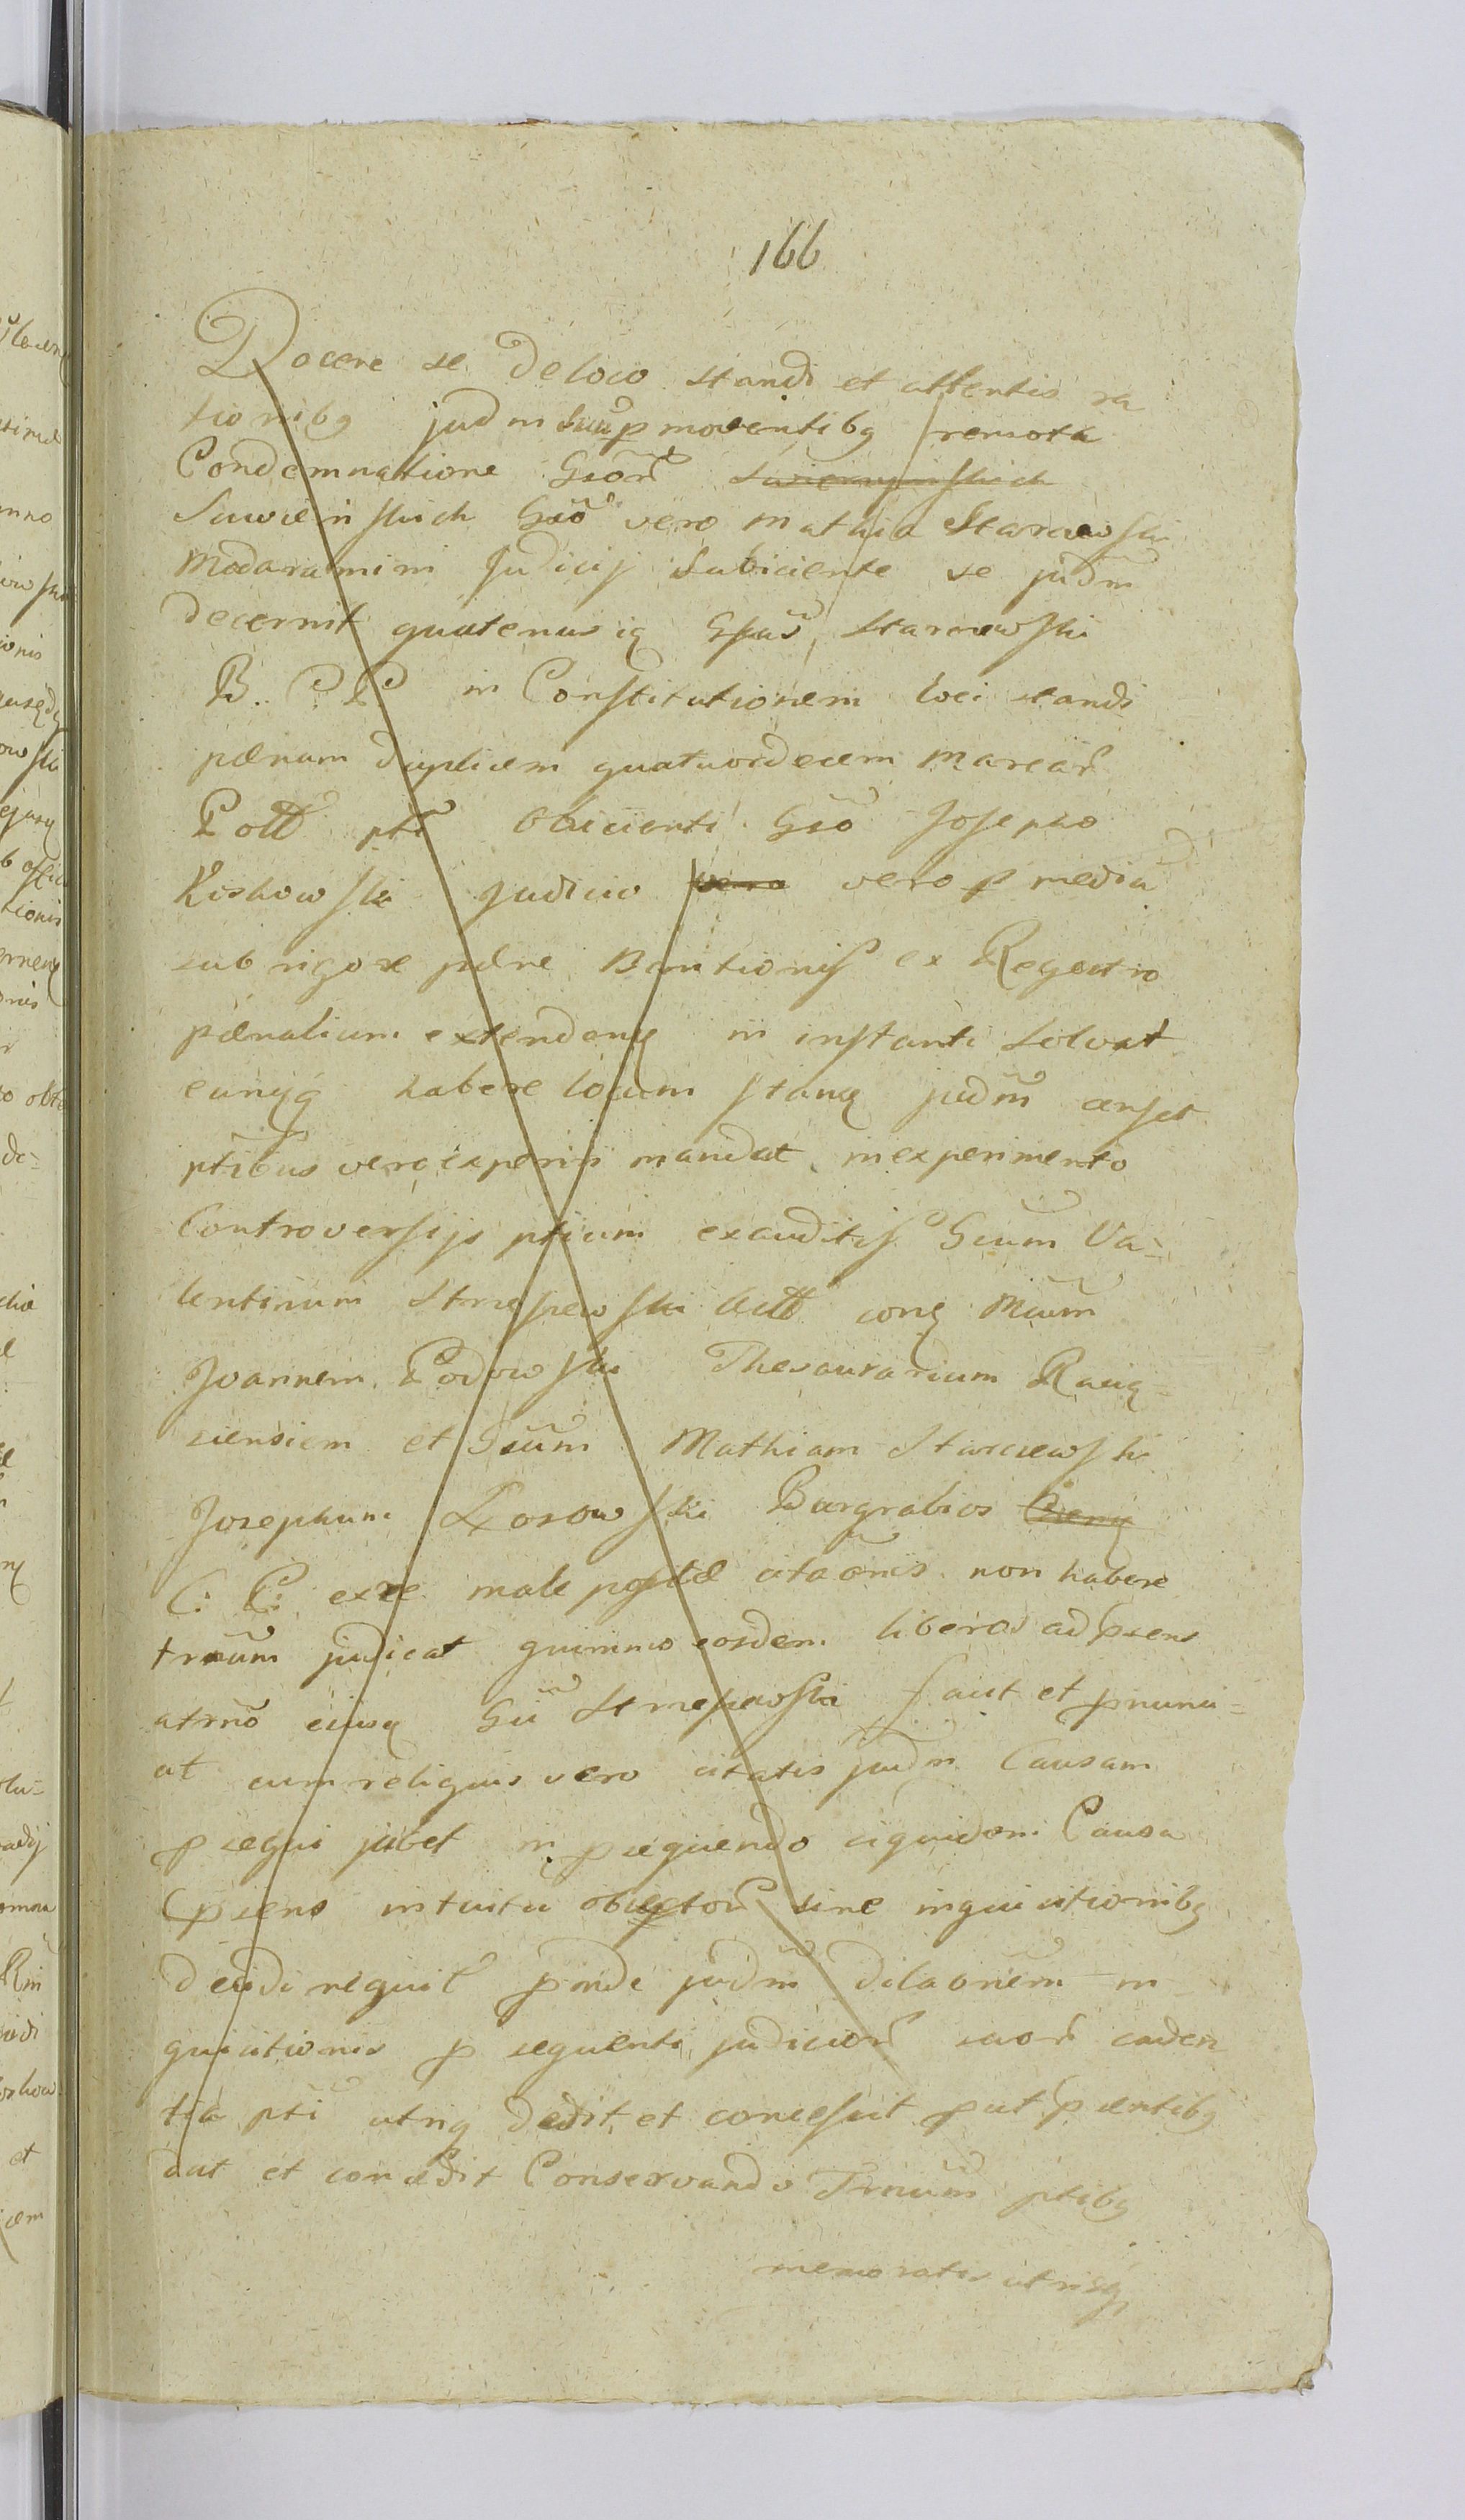 166
Docere se de loco standi et attentis ra
tionibq judm suu p moventibq remota
Condemnatione Gsor̃ Swierczynskich
Suwieńskich Gso vero Mathia Starczewski
Modaramini Judicij Subiciente se judm̃
decernit quatenus iq Gsus Starczewski
B. C. P. in Constitutionem loci standi
pænam duplicem quatuordecem Marcar̃
Poll pti Obiicienti Gso Josepho
Kiskowski Judicio vero vero p mediã
sub rigore pæne Banitionis ex Registro
pænalium extendenq in instanti Solvat
eunqq habere locum stanq judm̃ censet
ptibus vero experiri mandat in experimento
Controversijs ptium exauditis Gsum Va-
lentinum Strzeszewski Actt conq Mium
Joannem Podowski Thesaurarium Raciq=
ziensiem et Gsum Mathiam Starczewski
Josephum Łosowski Burgrabios
C: P: exre male positæ citaõnis non habere
trmum judicat quinimo eosdem liberos ad psens
atrno eiusq Gsi Strzeszewski facit et pnunci=
at cum reliquis vero citatis judm Causam
psequi jubet in psequendo siquidem Causa
psens intuitu obiector̃ sine inquisitionibq
decidi nequit pinde judm̃ dilaõnem in
quisitionis p sequenti judicior̃ suor̃ caden
tia pti utriq dedit et concessit put psentibq
dat et concedit Conservando Trmum ptibq
memoratis utrisq